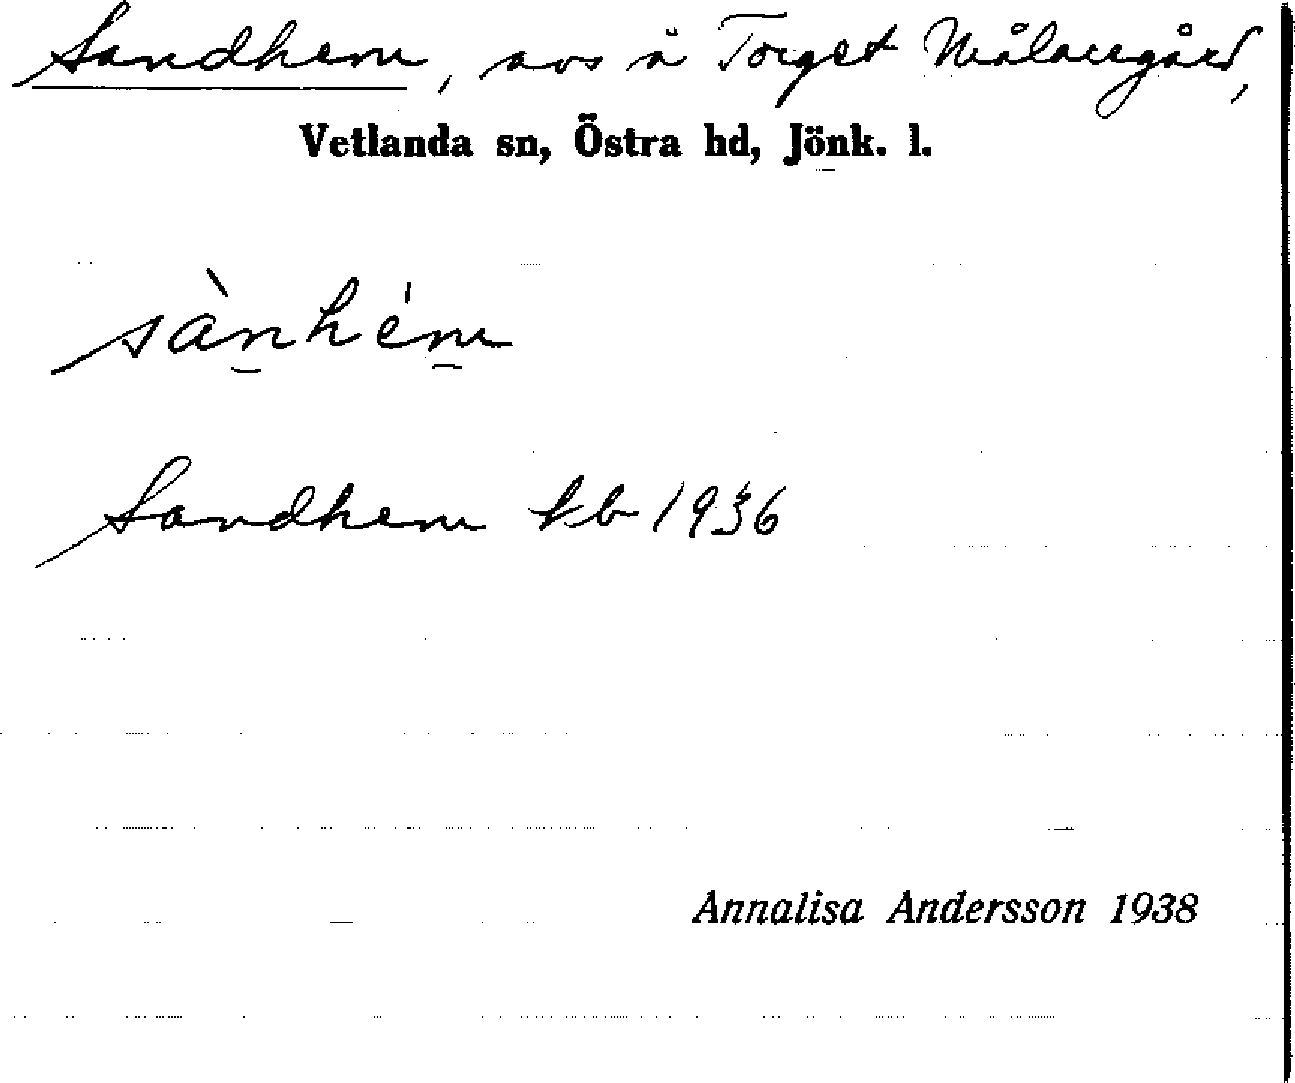 Sandhem, avs å Torget Målaregård,
Vetlanda sn, Östra hd, Jönk. l.
sànhém
Sandhem kb 1936
Annalisa Andersson 1938